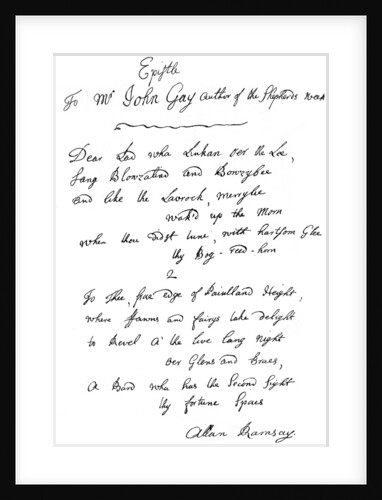 Epistle
To Mr John Gay author of the Shepherds week
Dear Lad wha Linkan o'er the Lee,
Sang Blowzalind and Bowzybee
and like the Lavrock, merrylee
wak'd up the Morn
when thou didst tune, with hartsom Glee
thy Bog-reed-horn
2
To Thee, frae edge of Height,
where fawns and fairys take delight
to Revel a' the live lang night
o'er Glens and Braes,
a Bard wha has the Second Sight
thy fortune Spaes
Allan Ramsay.